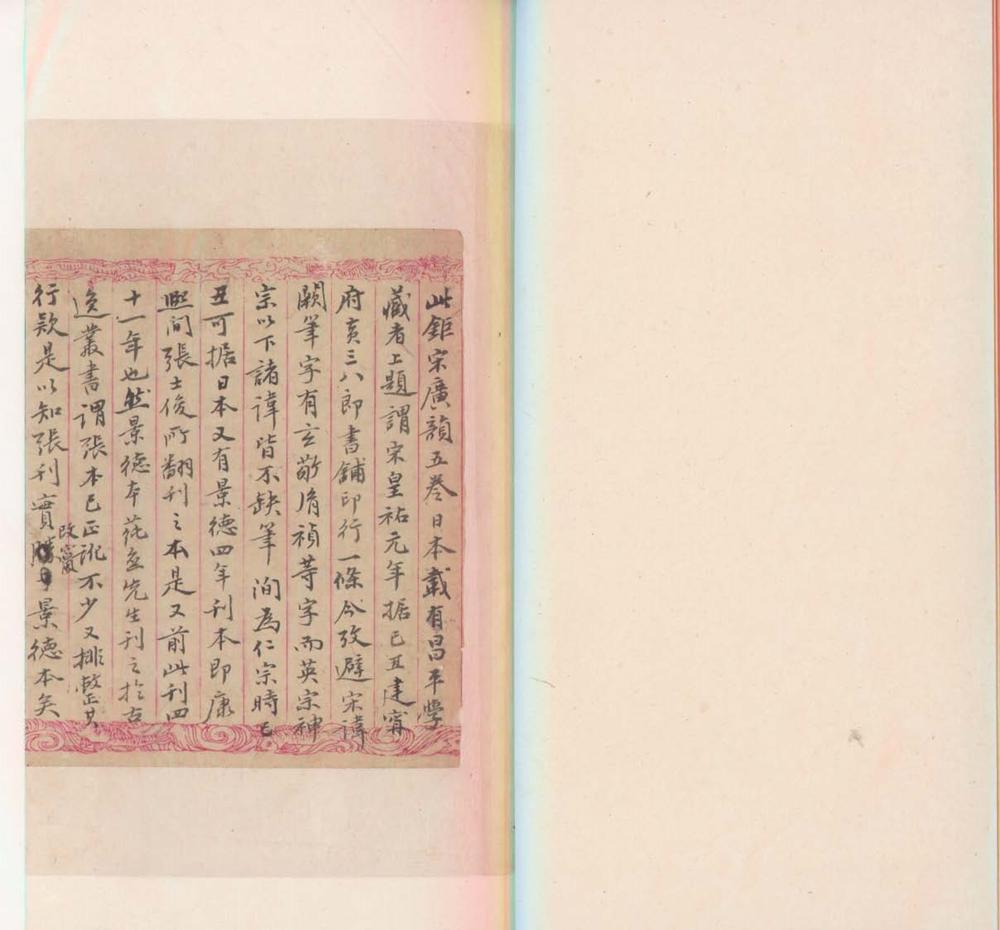 此鉅宋廣韻五卷日本載有昌平學
藏者上題謂宋皇祐元年据己丑建寗
府黃三八郎書鋪印行一條今攷避宋諱
闕筆字有玄敬侑禎等字而英宗神
宗以下諸諱皆不缺筆洵為仁宗時己
丑可据日本又有景德四年刊本即康
熙间張士俊所翻刊之本是又前此刊四
十一年也然景德本莼盦先生刊之於古
逸叢書謂張本已正訛不少又排整其
行欵是以知張刊實改竄景德本矣